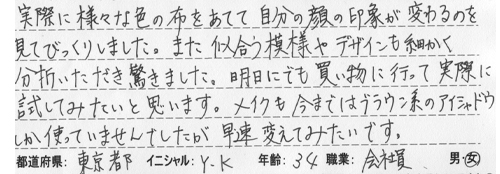 実際に様々な色の布をあてて自分の顔の印象が変わるのを
見てびっくりしました。また似合う模様やデザインも細かく
分析いただき驚きました。明日にでも買い物に行って実際に
試してみたいと思います。メイクも今まではブラウン系のアイシャドウ
しか使っていませんでしたが早速変えてみたいです。
都道府県: 東京都 イニシャル: Y・K 年齢: 34 職業: 会社員 男・女